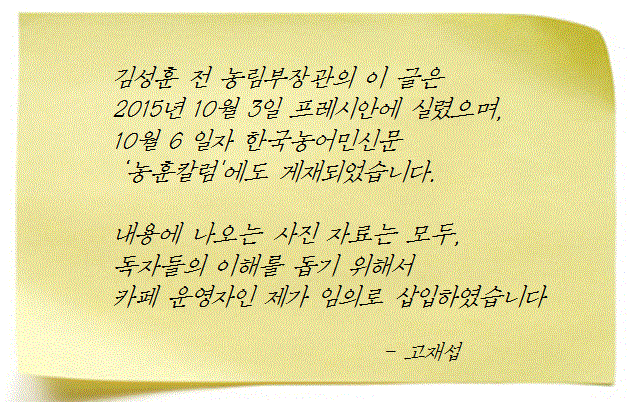 김성훈 전 농림부장관의 이 글은
2015년 10월 3일 프레시안에 실렸으며,
10월 6 일자 한국농어민신문
'농훈칼럼'에도 게재되었습니다.
내용에 나오는 사진 자료는 모두,
독자들의 이해를 돕기 위해서
카페 운영자인 제가 임의로 삽입하였습니다
- 고재섭